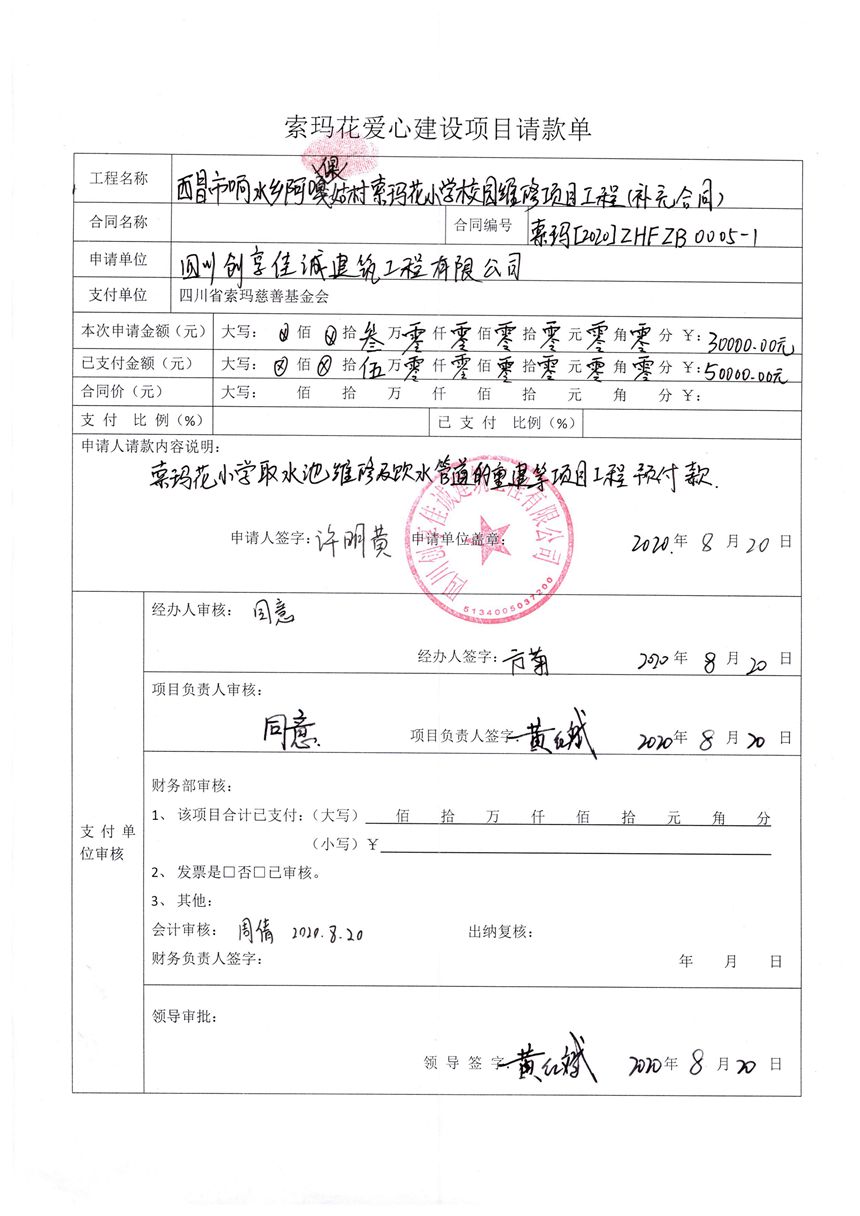 索玛花爱心建设项目请款单
工程名称 西昌市响水乡阿嘎姑村索玛花小学校园维修项目工程(补充合同)
合同名称 合同编号 索玛[2020]ZHFZB0005-1
申请单位 四川创享佳诚建筑工程有限公司
支付单位 四川省索玛慈善基金会
本次申请金额(元) 大写: ⊗ 佰 ⊗ 拾 叁 万 零 仟 零 佰 零 拾 零 元 零 角 零 分 ¥: 30000.00元
已支付金额(元) 大写: ⊗ 佰 ⊗ 拾 伍 万 零 仟 零 佰 零 拾 零 元 零 角 零 分 ¥: 50000.00元
合同价(元) 大写: 佰 拾 万 仟 佰 拾 元 角 分 ¥:
支付 比例(%) 已支付 比例(%)
申请人请款内容说明:
索玛花小学取水池维修及饮水管道的重建等项目工程预付款.
四川创享佳诚建筑工程有限公司
申请人签字: 许明黄 申请单位盖章: 2020.年 8 月 20 日
5134005037200
经办人审核: 同意
经办人签字: 方菊 2020 年 8 月 20 日
项目负责人审核:
同意.
项目负责人签字: 黄红斌 2020年 8 月 20 日
支付单位审核
财务部审核:
1、 该项目合计已支付:(大写) 佰 拾 万 仟 佰 拾 元 角 分
(小写)¥
2、 发票是□否□已审核。
3、 其他:
会计审核: 周倩 2020.8.20 出纳复核:
财务负责人签字: 年 月 日
领导审批:
领导签字: 黄红斌 2020年 8 月 20 日